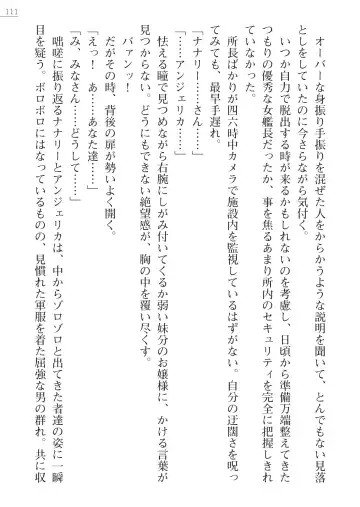 111
オーバーな身振り手振りを混ぜた人をからかうような説明を聞いて、とんでもない見落
としをしていたのに今さらながら気付く。
いつか自力で脱出する時が来るかもしれないのを考慮し、日頃から準備万端整えてきた
つもりの優秀な女艦長だったか、事を焦るあまり所内のセキュリティを完全に把握しきれ
ていなかった。
所長ばかりが四六時中カメラで施設内を監視しているはずがない。自分の迂闊さを呪っ
てみても、最早手遅れ。
「ナナリー……さん……」
「……アンジェリカ……」
怯える瞳で見つめながら右腕にしがみ付いてくるか弱い妹分のお嬢様に、かける言葉が
見つからない。どうにもできない絶望感が、胸の中を覆い尽くす。
バァンッ！
だがその時、背後の扉が勢いよく開く。
「えっ！　あ……あなた達……」
「み、みなさん……どうして……」
咄嗟に振り返るナナリーとアンジェリカは、中からゾロゾロと出てきた者達の姿に一瞬
目を疑う。ボロボロにはなっているものの、見慣れた軍服を着た屈強な男の群れ。共に収